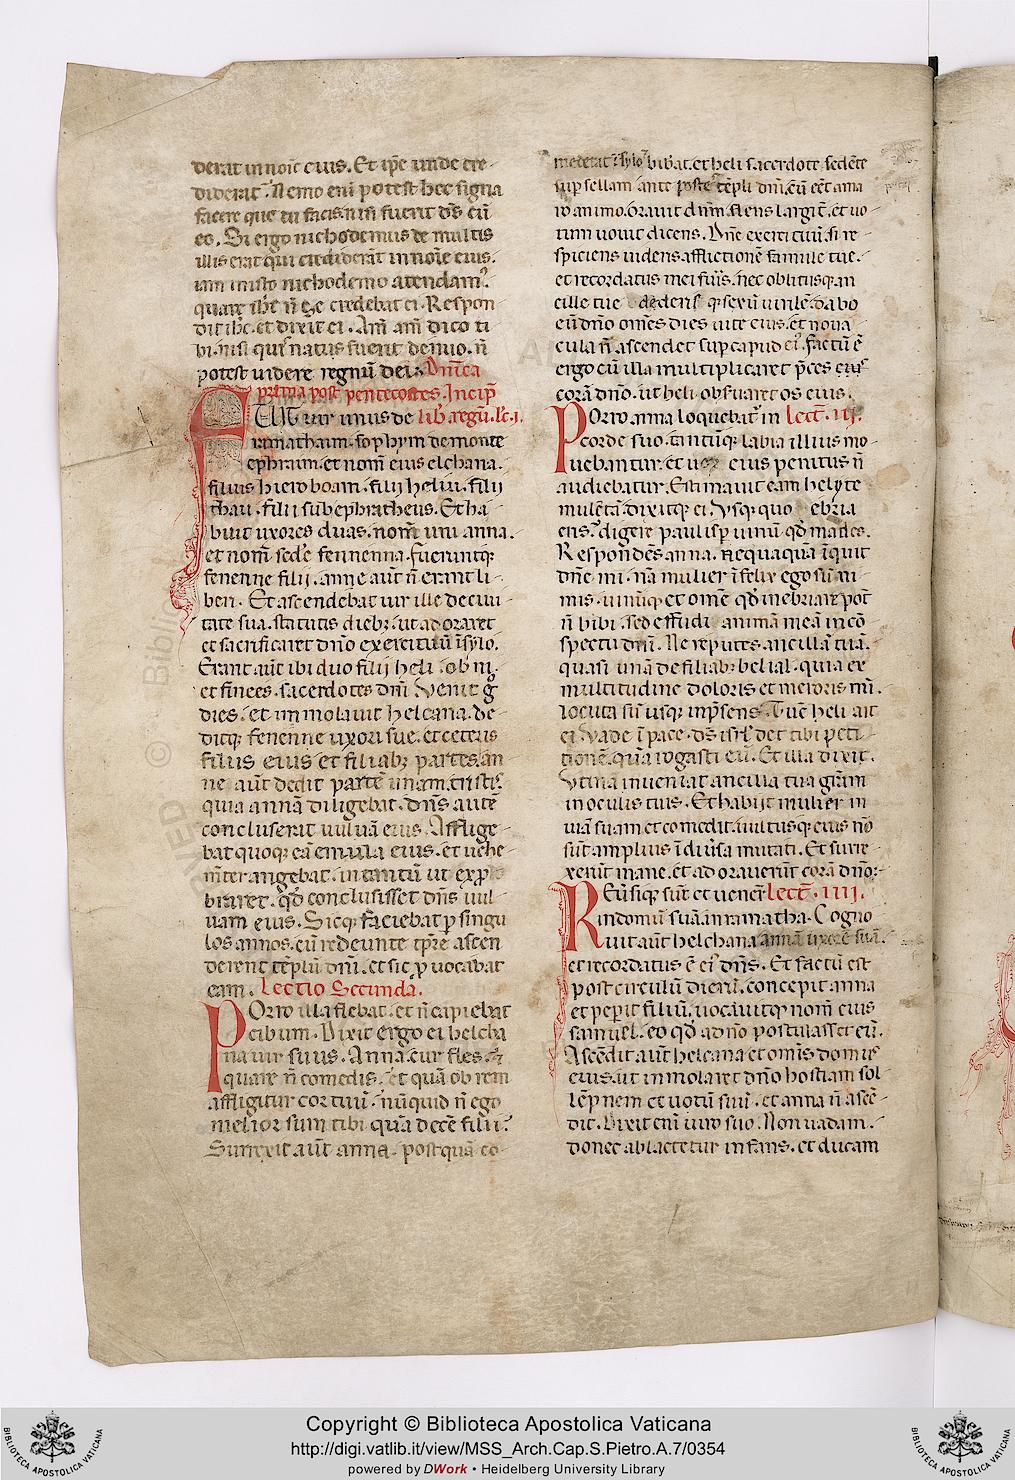 derat in noīe eius. Et ip̄e unde cre-
diderit. Nemo eni potest hec signa
facere que tu facis nisi fuerit dš cū
eo. Si ergo nichodemus de multis
illis erat qui crediderāt in noīe eius.
iam in isto nichodemo atendam.
quare ihc̄ n̄ se credebat ei. Respon
dit ihc̄. et dixit ei. Am̄ am̄ dico ti
bi. nisi quis natus fuerit denuo. n̄
potest videre regnū dei. Dn̄ica
prima post pentecostes. Incip̄
FUIT vir unus de lib̄. regū. lc̄. i.
ramathaim. sophym de monte
ephraim. et nom̄ eius elchana.
filius hieroboam. filij heliu. filij
thau. filii sub ephratheus. Et ha-
buit uxores duas. nom̄ uni anna.
et nom̄ sed̄e fennenna. fueruntq;
fenenne filii. anne aut n̄ erant li-
beri. Et ascendebat vir ille de civi-
tate sua. statutis dieb;. ut adoraret
et sacrificaret dn̄o exercituū ī sylo.
Erant aut ibi duo filij heli. obni.
et finees. sacerdotes dn̄i. Venit g̊
dies. et immolavit helcana. de-
ditq; fenenne uxori sue. et ceteris
filiis eius et filiab; partes. an
ne aūt dedit partē unam. tristis.
quia annā diligebat. dn̄s autē
concluserit vulvā eius. Afflige-
bat quoq; eā emula eius. et vehe-
mēter angebat. in tantū ut exp̄ro
braret. qd̄ conclusisset dn̄s vul
vam eius. Sicq; faciebat p singu
los annos. cū redeunte tp̄re ascen
derent tēplū dn̄i. et sic p̄vocabat
eam. Lectio Secunda.
POrro illa flebat. et n̄ capiebat
cibum. Dixit ergo ei helcha
na vir suus. Anna. cur fles. et
quare n̄ comedis. et quā ob rem
affligitur cor tuū. nūquid n̄ ego
melior sum tibi quā decē filii.
Surrexit aūt anna. postquā co-
mederat ī sylo bibat. et heli sacerdote sedēte
sup sellam ante postes tēpli dn̄i. cū eēt ama
ro animo. oravit dn̄m. flens largit̄. et vo-
tum vovit dicens. Dn̄e exercituū. si re-
spiciens videris afflictionē famule tue.
et recordatus mei fuis. nec oblitusq; an
cille tue dederis q; servū virilē. dabo
eū dn̄o omēs dies vite eius. et nova
cula n̄ ascendet sup capud ei'. Factū ē
ergo cū illa multiplicaret p̄ces eius
corā dn̄o. ut heli observaret os eius.
POrro anna loquebat̄ in Lect̄. iij.
corde suo. tantūq; labia illius mo-
vebantur. et vox eius penitus n̄
audiebatur. Estimavit eam hely te
mulētā. dixitq; ei. Usq; quo ebria
eris. digere paulisp vinū qd̄ mades.
Respondēs anna. nequaquā īquit
dn̄e mi. nā mulier īfelix ego sū ni
mis. vinūq; et omē qd̄ inebriare pot̄
n̄ bibi. sed effudi animā meā in cō
spectu dn̄i. Ne reputes ancillā tuā.
quasi unā de filiab; belial. quia ex
multitudine doloris et meroris mi.
locuta sū usq; in p̄sens. Tūc heli ait
ei. Vade ī pace. dš isrl̄ det tibi peti-
tionē. quā rogasti eū. Et illa dixit.
Utinā inveniat ancilla tua gr̄am
in oculis tuis. Et habijt mulier in
viā suam. et comedit. vultusq; eius nō
sūt amplius ī div̄sa mutati. Et surre-
xerūt mane. et adoraverūt corā dn̄o:
REūsiq; sūt et venerūt Lect̄. iiii.
in domū suā in ramatha. Cogno
vit aūt helchana annā uxorē suā.
et recordatus ē ei' dn̄s. Et factū est
post circulū dierū. concepit anna
et pepit filiū. vocavitq; nom̄ eius
samuel. eo qd̄ a dn̄o postulasset eū.
Ascēdit aūt helcana et om̄is domus
eius. ut immolaret dn̄o hostiam sol-
lēpnem et votū suū. et anna n̄ ascē-
dit. Dixit eni viro suo. Non vadam.
donec ablactetur infans. et ducam
Copyright © Biblioteca Apostolica Vaticana
http://digi.vatlib.it/view/MSS_Arch.Cap.S.Pietro.A.7/0354
powered by DWork • Heidelberg University Library
BIBLIOTECA APOSTOLICA VATICANA
BIBLIOTECA APOSTOLICA VATICANA